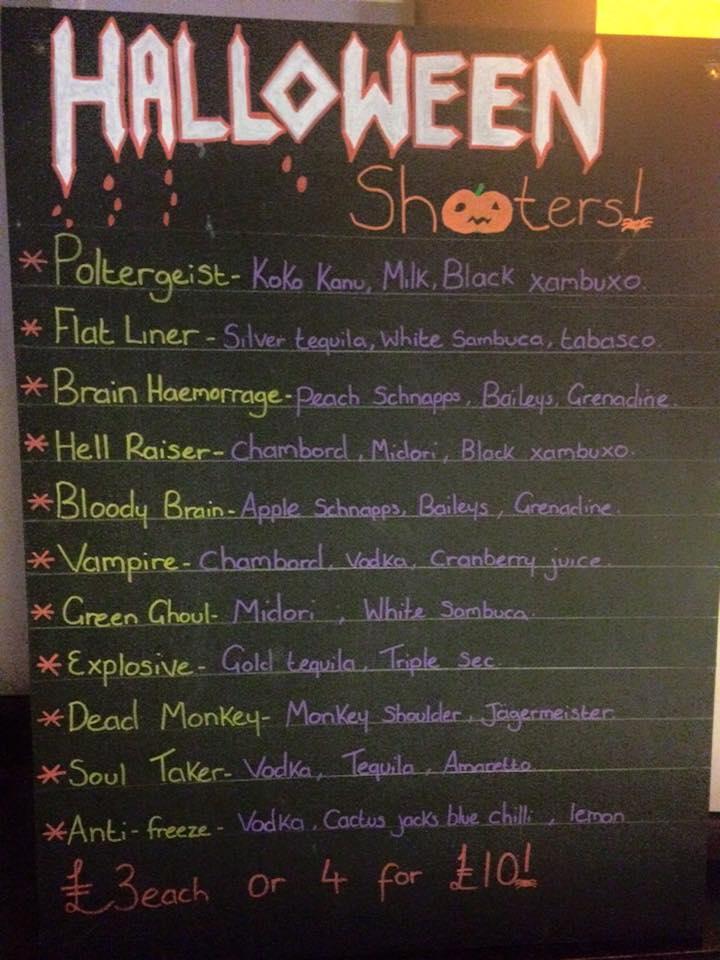 HALLOWEEN
Shooters!
* Poltergeist - Koko Kanu, Milk, Black xambuxo.
* Flat Liner - Silver tequila, White Sambuca, tabasco.
* Brain Haemorrage - Peach Schnapps, Baileys, Grenadine.
* Hell Raiser - Chambord, Midori, Black xambuxo.
* Bloody Brain - Apple Schnapps, Baileys, Grenadine.
* Vampire - Chambord, Vodka, Cranberry juice.
* Green Ghoul - Midori, White Sambuca.
* Explosive - Gold tequila, Triple Sec
* Dead Monkey - Monkey Shoulder, Jägermeister
* Soul Taker - Vodka, Tequila, Amaretto
* Anti-freeze - Vodka, Cactus jacks blue chilli, lemon
£3 each or 4 for £10!